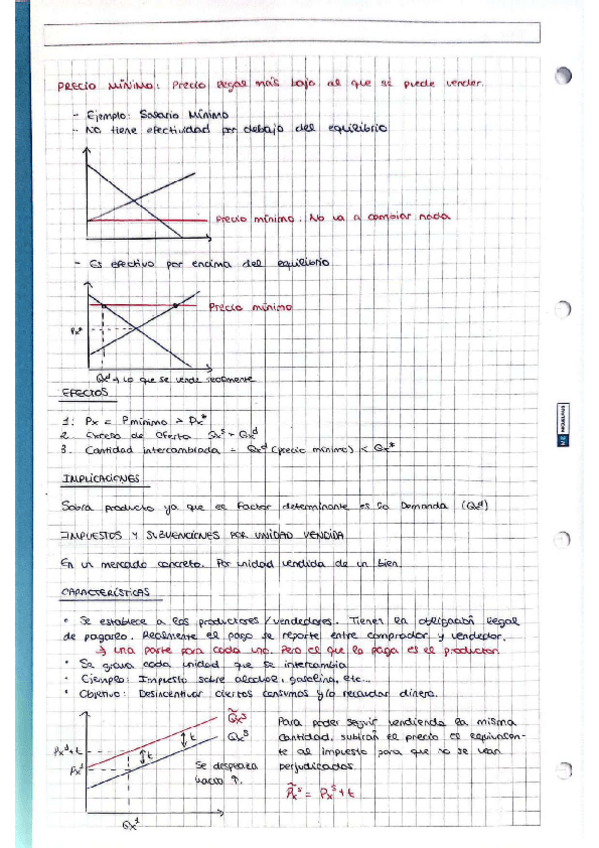 PRECIO MÍNIMO: Precio legal más bajo al que se puede vender.
- Ejemplo: Salario Mínimo
- NO tiene efectividad por debajo del equilibrio
Precio mínimo. No va a cambiar nada
- Es efectivo por encima del equilibrio
Precio mínimo
Px*
Qxd → Lo que se vende realmente
EFECTOS
1: Px = Pmínimo > Px*
2. Exceso de oferta Qxs > Qxd
3. Cantidad intercambiada = Qxd (precio mínimo) < Qx*
IMPLICACIONES
Sobra producto ya que el factor determinante es la Demanda (Qxd)
IMPUESTOS Y SUBVENCIONES POR UNIDAD VENDIDA
En un mercado concreto. Por unidad vendida de un bien.
CARACTERÍSTICAS
• Se establece a los productores/vendedores. Tienen la obligación legal
de pagarlo. Realmente el pago se reparte entre comprador y vendedor.
↳ una parte para cada uno. Pero el que la paga es el productor.
• Se grava cada unidad que se intercambia
• Ejemplo: Impuesto sobre alcohol, gasolina, etc...
• Objetivo: Desincentivar ciertos consumos y/o recaudar dinero.
Q̃xs
Qxs
t
t
Pxs+t
Pxs
Qx1
Se desplaza
hacia ↑.
Para poder seguir vendiendo la misma
cantidad, subirán el precio el equivalen-
te al impuesto para que no se vean
perjudicados.
P̃xs = Pxs + t